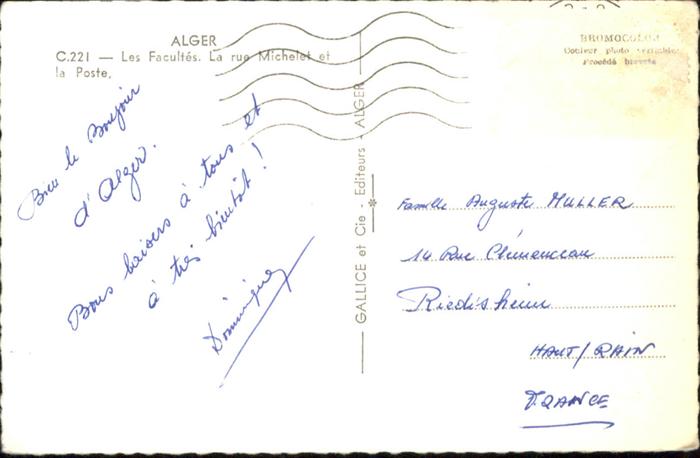 ALGER
C.221 — Les Facultés. La rue Michelet et
la Poste,
Bien le Bonjour
d'Alger.
Bons baisers à tous et
à très bientôt !
Dominique
GALLICE et Cie - Editeurs - ALGER
BROMOCOLOR
Couleur photo véritable
Procédé breveté
Famille Auguste MULLER
14 Rue Clémenceau
Riedisheim
HAUT/RHIN
FRANCE